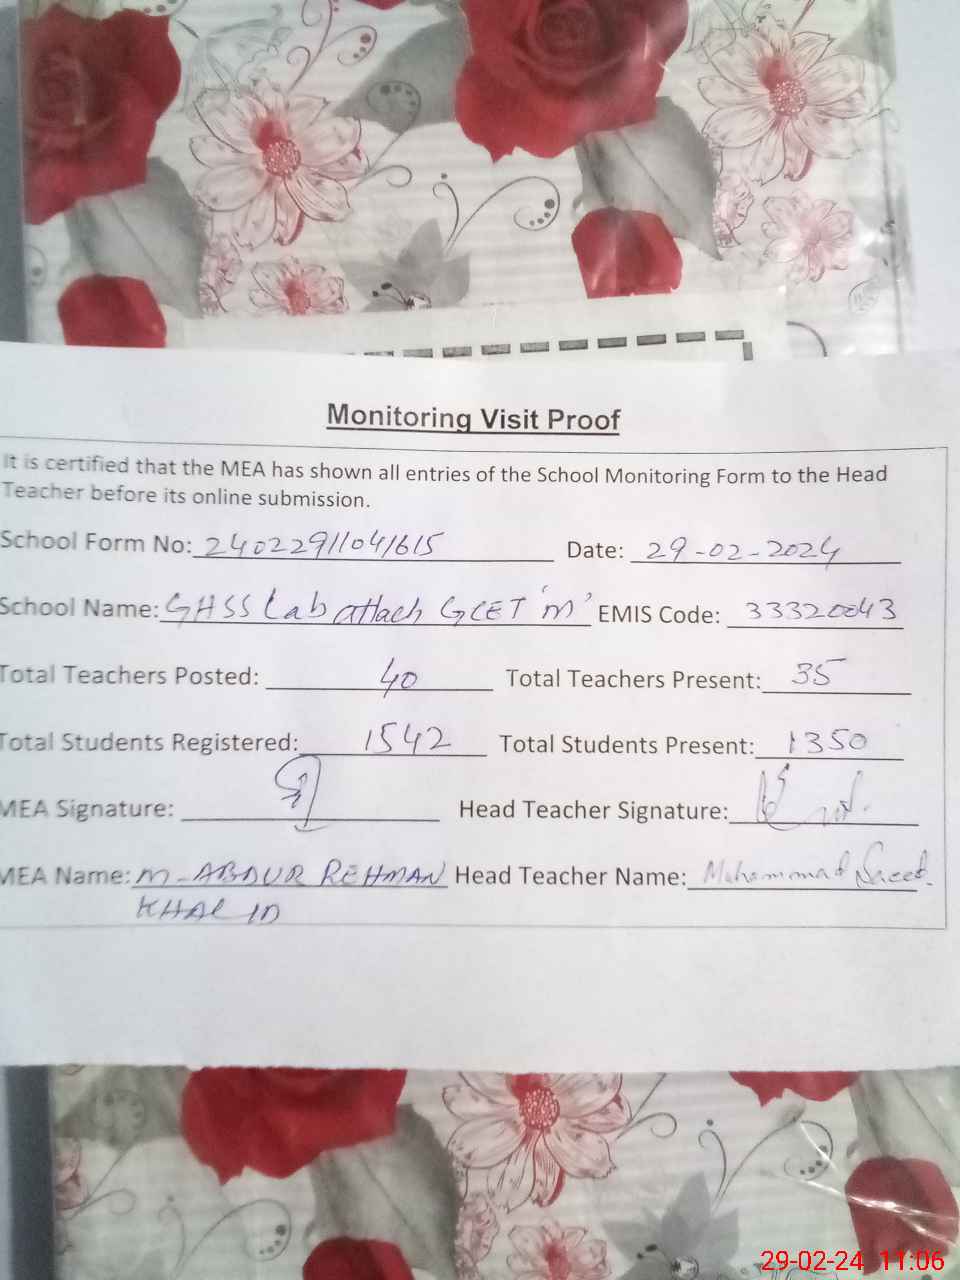 Monitoring Visit Proof
It is certified that the MEA has shown all entries of the School Monitoring Form to the Head
Teacher before its online submission.
School Form No: 24022911041615 Date: 29-02-2024
School Name: GHSS Lab attach GCET 'm' EMIS Code: 33320043
Total Teachers Posted: 40 Total Teachers Present: 35
Total Students Registered: 1542 Total Students Present: 1350
MEA Signature: Head Teacher Signature:
MEA Name: M-ABDUR REHMAN Head Teacher Name: Muhammad Saeed.
KHALID
29-02-24 11:06